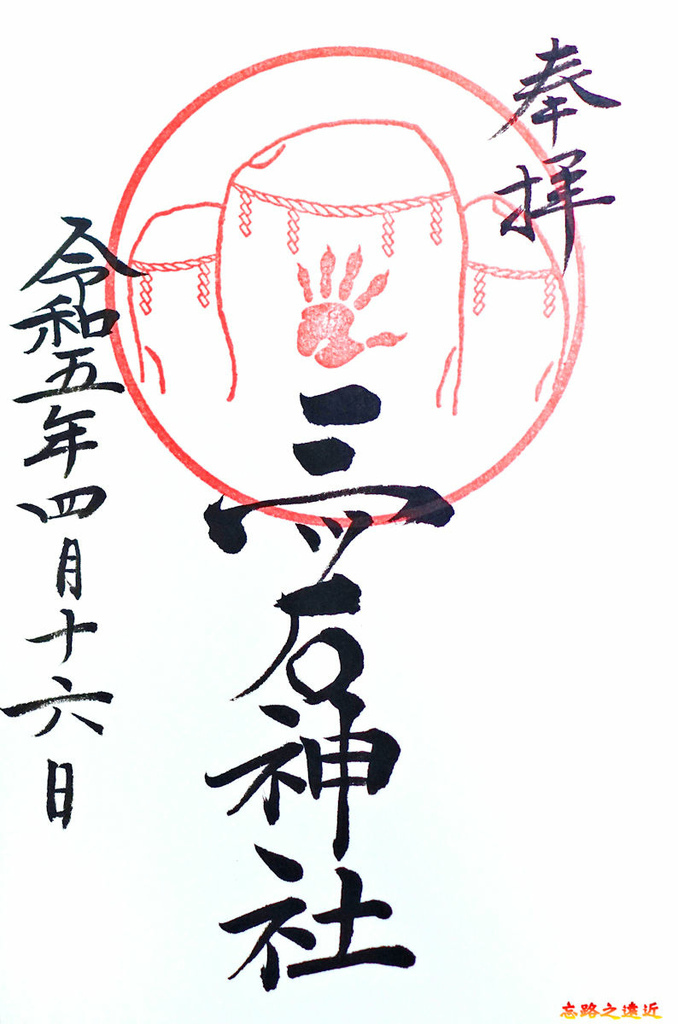 奉拝
三ツ石神社
令和五年四月十六日
忘路之遠近